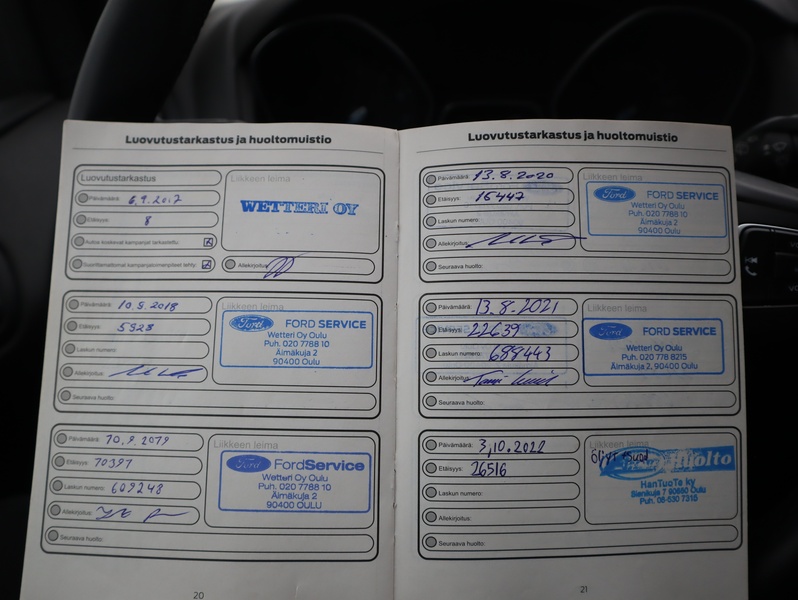 Luovutustarkastus ja huoltomuistio
Luovutustarkastus
Päivämäärä: 6.9.2017
Etäisyys: 8
Autoa koskevat kampanjat tarkastettu:
Suorittamattomat kampanjatoimenpiteet tehty:
Liikkeen leima
WETTERI OY
Allekirjoitus:
Päivämäärä: 10.9.2018
Etäisyys: 5528
Laskun numero:
Allekirjoitus:
Seuraava huolto:
Liikkeen leima
Ford FORD SERVICE
Wetteri Oy Oulu
Puh. 020 7788 10
Äimäkuja 2
90400 Oulu
Päivämäärä: 10.9.2019
Etäisyys: 10397
Laskun numero: 609248
Allekirjoitus:
Seuraava huolto:
Liikkeen leima
Ford FordService
Wetteri Oy Oulu
Puh. 020 7788 10
Äimäkuja 2
90400 OULU
20
Luovutustarkastus ja huoltomuistio
Päivämäärä: 13.8.2020
Etäisyys: 16447
Laskun numero:
Allekirjoitus:
Seuraava huolto:
Liikkeen leima
Ford FORD SERVICE
Wetteri Oy Oulu
Puh. 020 7788 10
Äimäkuja 2
90400 Oulu
Päivämäärä: 13.8.2021
Etäisyys: 22639
Laskun numero: 688443
Allekirjoitus:
Seuraava huolto:
Liikkeen leima
Ford FORD SERVICE
Wetteri Oy Oulu
Puh. 020 778 8215
Äimäkuja 2, 90400 Oulu
Päivämäärä: 3,10,2022
Etäisyys: 26516
Laskun numero:
Allekirjoitus:
Seuraava huolto:
Liikkeen leima
Huolto
HanTuoTe ky
Puh. 08-530 7310
21